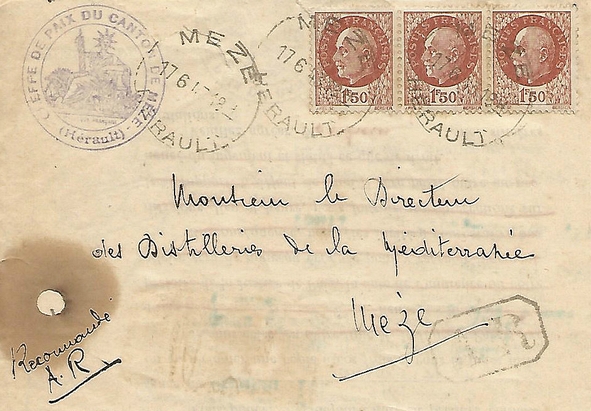 GEFFE DE PAIX DU CANTON DE MEZE
(Hérault)
MEZE
17 6
HERAULT
MEZE
17 6
HERAULT
POSTES FRANÇAISES
1F50
POSTES FRANÇAISES
1F50
POSTES FRANÇAISES
1F50
Monsieur le Directeur
des Distilleries de la Méditerranée
Mèze
Recommandé
A.R